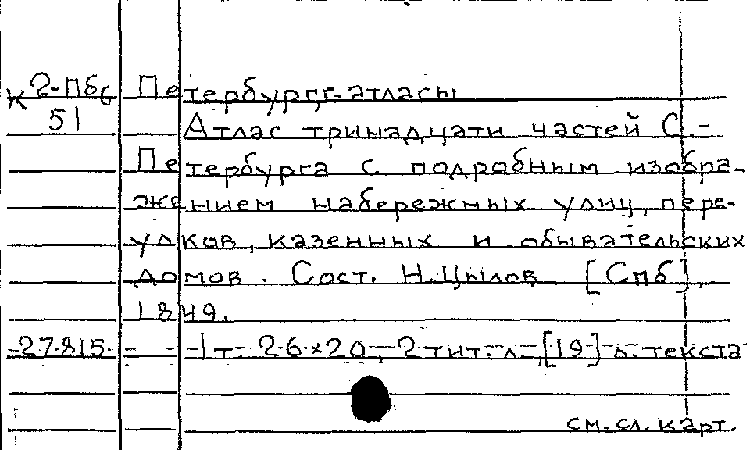 К 2-Пбг Петербург-атласы
51 Атлас тринадцати частей С.-
Петербурга с подробным изобра-
жением набережных улиц, пере-
улков, казенных и обывательских
домов. Сост. Н.Цылов [Спб],
1849.
27.815. - - - 1 т. 26×20, 2 тит. л., [19] л. текста
см. сл. карт.